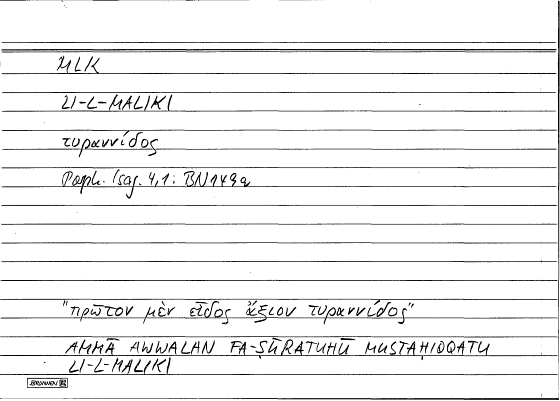 MLK
LI-L-MALIKI
τυραννίδος
Porph. Isag. 4,1: BN149a
"πρῶτον μὲν εἶδος ἄξιον τυραννίδος"
AMMĀ AWWALAN FA-ṢŪRATUHŪ MUSTAḤIQQATU
LI-L-MALIKI
BRUNNEN